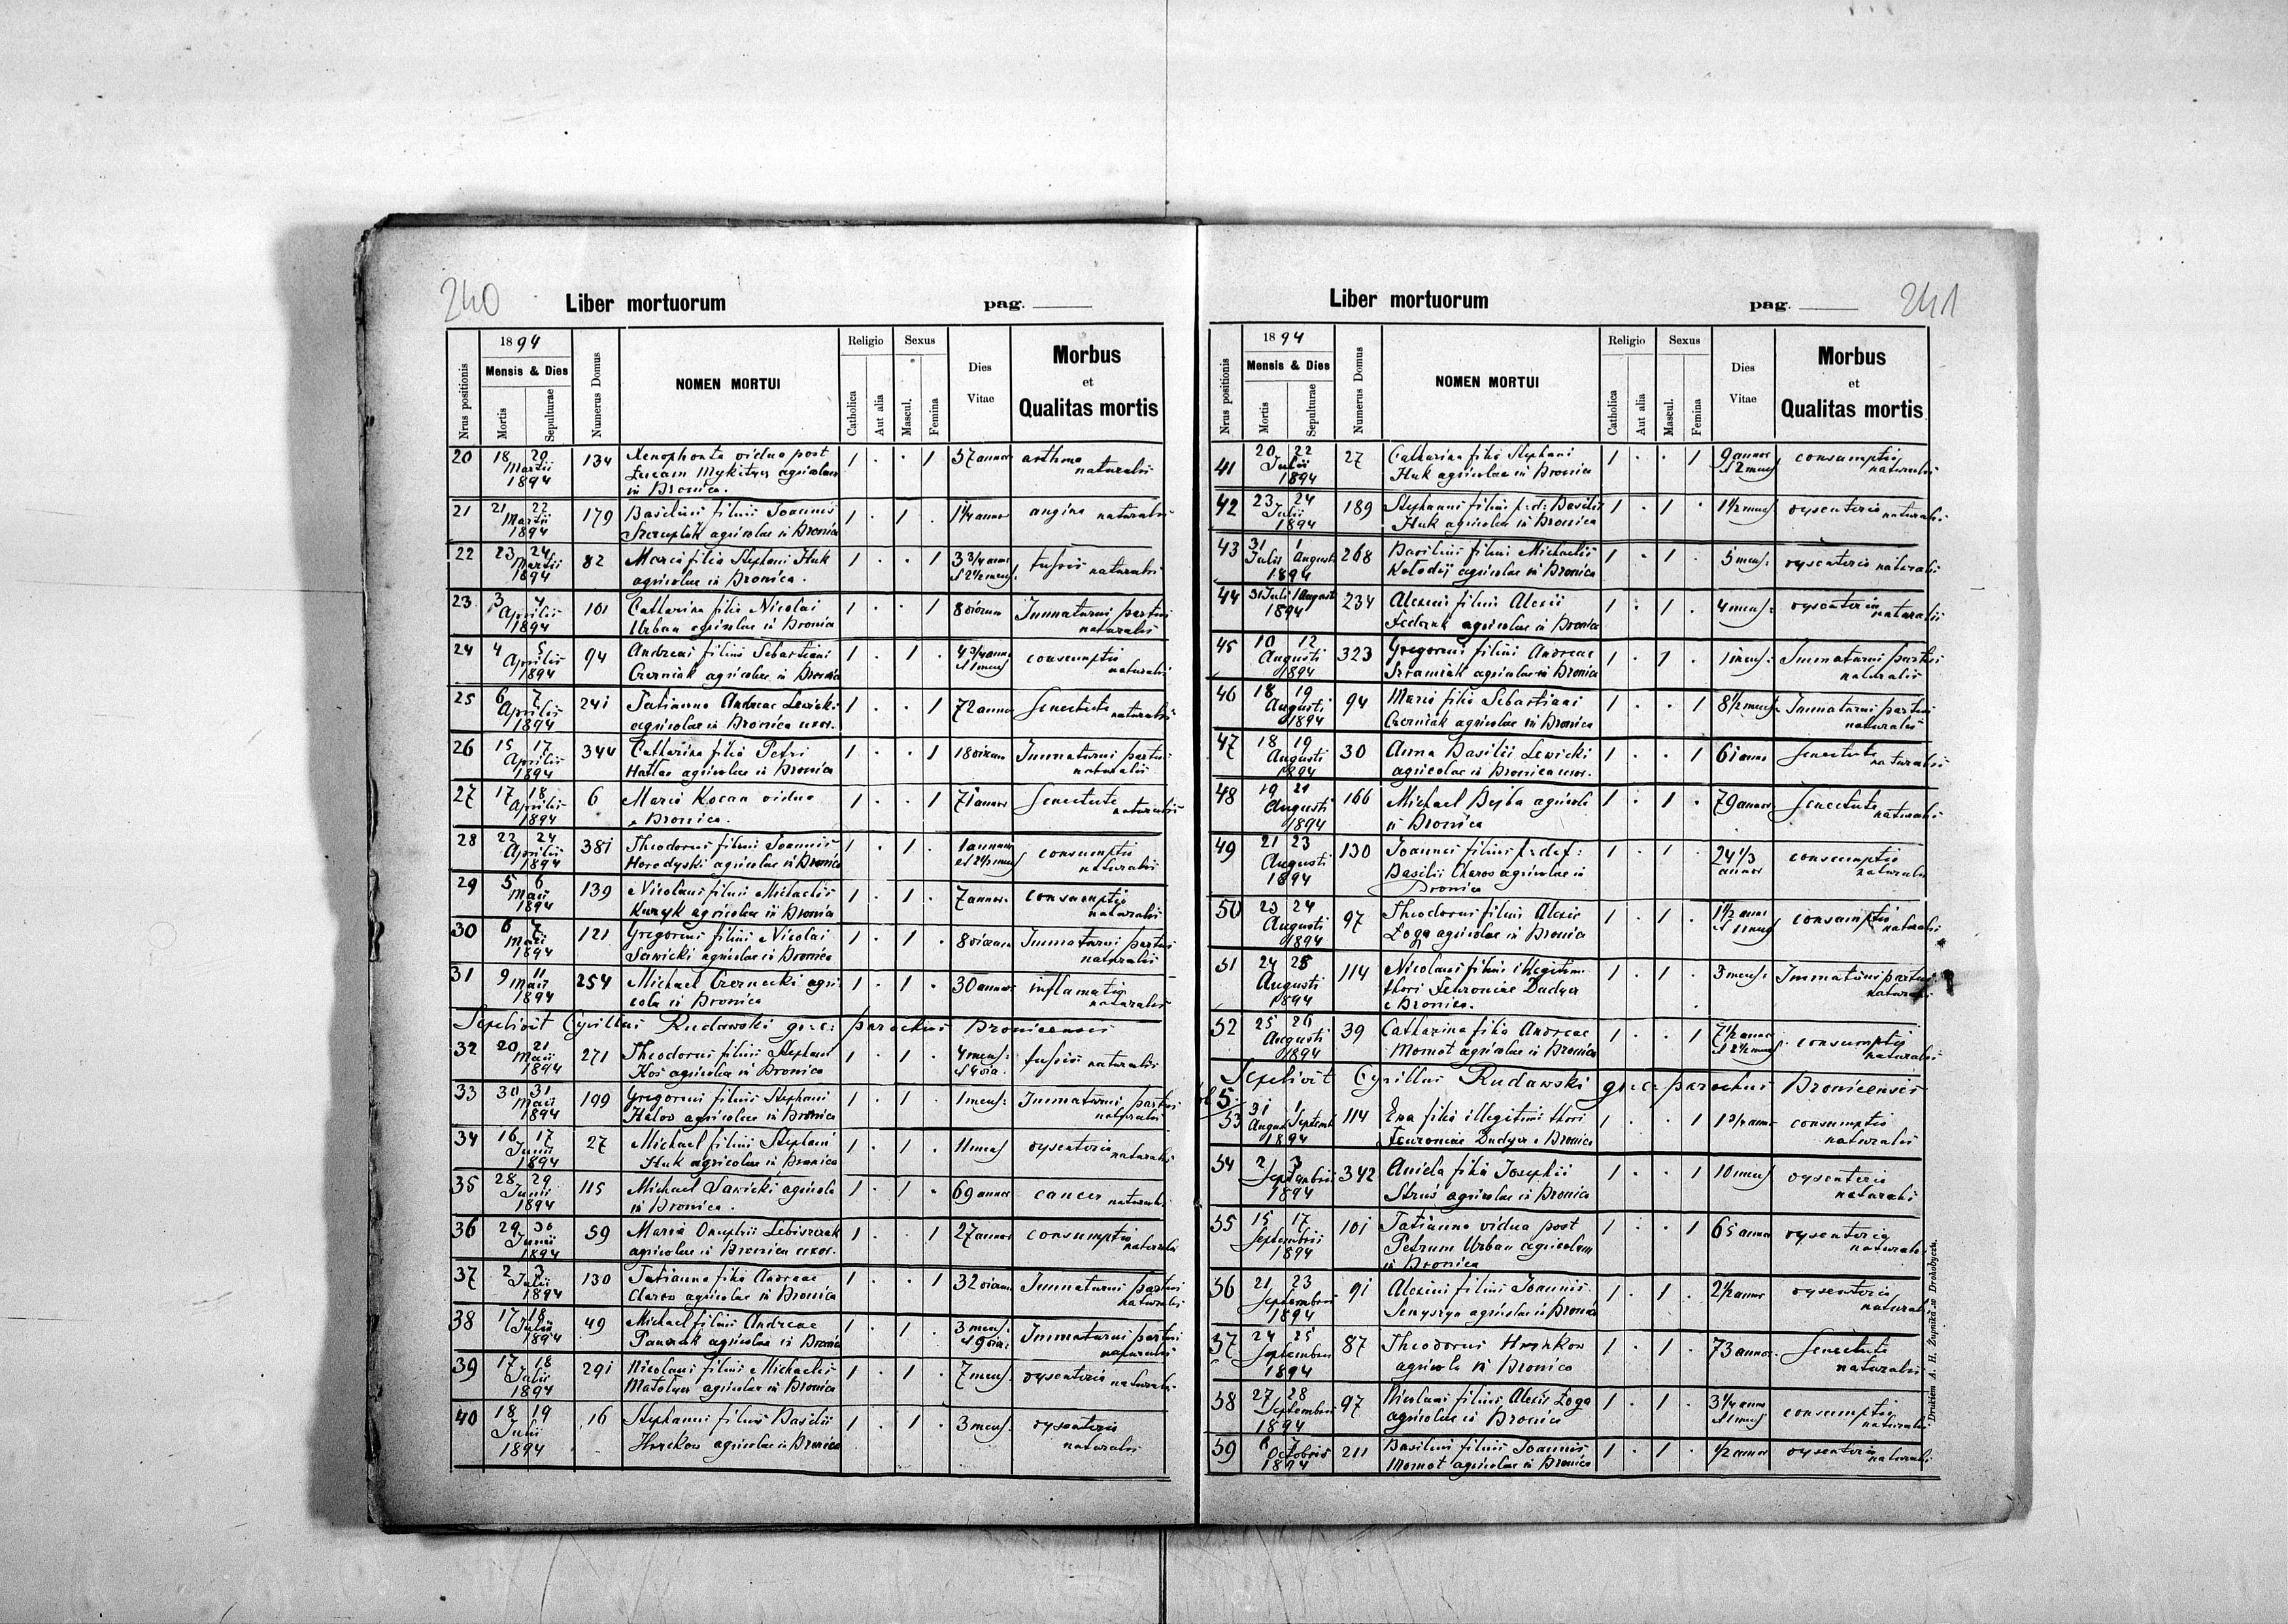 240
Liber mortuorum pag.
Nrus positionis
1894
Mensis & Dies
Mortis
Sepulturae
Numerus Domus
NOMEN MORTUI
Religio
Catholica
Aut alia
Sexus
Mascul.
Femina
Dies
Vitae
Morbus
et
Qualitas mortis
20 18 20 Martii 1894 134 Xenophonta vidua post 1 . . 1 57 annor asthma naturalis
Lucam Mykityn agricolam
in Bronica.
21 21 22 Martii 1894 179 Basilius filius Joannis 1 . 1 . 1 1/4 annor angina naturalis
agricolae in Bronica
22 23 24 Martii 1894 82 Maria filia Stephani Huk 1 . . 1 3 3/4 anni et 2 1/2 mens: tussis naturalis
agricolae in Bronica.
23 3 4 Aprilis 1894 101 Catharina filia Nicolai 1 . . 1 8 dierum Immaturus partus naturalis
Urban agricolae in Bronica
24 4 5 Aprilis 1894 94 Andreas filius Sebastiani 1 . 1 . 4 3/4 anni et 1 mens consumptio naturalis
Czerniak agricolae in Bronica
25 6 7 Aprilis 1894 241 Tatianna Andreae Lewicki 1 . . 1 72 annor Senectute naturalis
agricolae in Bronica uxor.
26 15 17 Aprilis 1894 344 Catharina filia Petri 1 . . 1 18 dierum Immaturus partus naturalis
agricolae in Bronica
27 17 18 Aprilis 1894 6 Maria Kocan vidua 1 . . 1 71 annor Senectute naturalis
e Bronica.
28 22 24 Aprilis 1894 381 Theodorus filius Joannis 1 . 1 . 1 annum consumptio naturalis
Horodyski agricolae in Bronica
29 5 6 Maii 1894 139 Nicolaus filius Michaelis 1 . 1 . 7 annor. consumptio naturalis
agricolae in Bronica
30 6 7 Maii 1894 121 Gregorius filius Nicolai 1 . 1 . 8 dierum Immaturus partus naturalis
Sawicki agricolae in Bronica
31 9 11 Maii 1894 254 Michael Czernecki agri 1 . 1 . 30 annor inflamatio naturalis
cola in Bronica
Sepelivit Cyrillus Rudawski gr: c: parochus Bronicensis
32 20 21 Maii 1894 271 Theodorus filius Stephani 1 . 1 . 4 mens: et 4 die. tussis naturalis
Koś agricolae in Bronica
33 30 31 Maii 1894 199 Gregorius filius Stephani 1 . 1 . 1 mens: Immaturus partus naturalis
agricolae in Bronica
34 16 17 Junii 1894 27 Michael filius Stephani 1 . 1 . 11 mens dysenteria naturalis
Huk agricolae in Bronica
35 28 29 Junii 1894 115 Michael Sawicki agricola 1 . 1 . 69 annor cancer naturalis
in Bronica.
36 29 30 Junii 1894 59 Maria Onuphrii Lebiszczak 1 . . 1 27 annor consumptio naturalis
agricolae in Bronica uxor.
37 2 3 Julii 1894 130 Tatianna filia Andreae 1 . . 1 32 dierum Immaturus partus naturalis
agricolae in Bronica
38 17 18 Julii 1894 49 Michael filius Andreae 1 . 1 . 3 mens: et 9 die: Immaturus partus naturalis
agricolae in Bronica
39 17 18 Julii 1894 291 Nicolaus filius Michaelis 1 . 1 . 7 mens: dysenteria naturalis
agricolae in Bronica
40 18 19 Julii 1894 16 Stephanus filius Basilii 1 . 1 . 3 mens: dysenteria naturalis
agricolae in Bronica
241
Liber mortuorum pag.
Nrus positionis
1894
Mensis & Dies
Mortis
Sepulturae
Numerus Domus
NOMEN MORTUI
Religio
Catholica
Aut alia
Sexus
Mascul.
Femina
Dies
Vitae
Morbus
et
Qualitas mortis
41 20 22 Julii 1894 27 Catharina filia Stephani 1 . . 1 9 annor et 2 mens consumptio naturalis
Huk agricolae in Bronica
42 23 24 Julii 1894 189 Stephanus filius p: d: Basilii 1 . 1 . 1 1/2 mens dysenteria naturalis
Huk agricolae in Bronica
43 31 Julii 1 Augusti 1894 268 Basilius filius Michaelis 1 . 1 . 5 mens: dysenteria naturalis
Kołodij agricolae in Bronica
44 31 Julii 1 Augusti 1894 234 Alexius filius Alexii 1 . 1 . 4 mens: dysenteria naturalis
agricolae in Bronica
45 10 12 Augusti 1894 323 Gregorius filius Andreae 1 . 1 . 1 mens: Immaturus partus naturalis
agricolae in Bronica
46 18 19 Augusti 1894 94 Maria filia Sebastiani 1 . . 1 8 1/2 mens Immaturus partus naturalis
Czerniak agricolae in Bronica
47 18 19 Augusti 1894 30 Anna Basilii Lewicki 1 . . 1 61 anno Senectute naturalis
agricolae in Bronica uxor.
48 19 21 Augusti 1894 166 Michael Dejba agricola 1 . 1 . 79 annor Senectute naturalis
in Bronica
49 21 23 Augusti 1894 130 Joannes filius p: def: 1 . 1 . 24 1/3 annor consumptio naturalis
Basilii agricolae in
Bronica
50 23 24 Augusti 1894 97 Theodorus filius Alexii 1 . 1 . 1 1/2 anni consumptio naturalis
Łoga agricolae in Bronica
51 24 25 Augusti 1894 114 Nicolaus filius illegitimi 1 . 1 . 3 mens: Immaturus partus naturalis
thori Fevroniae Dudycz
e Bronica.
52 25 26 Augusti 1894 39 Catharina filia Andreae 1 . . 1 7 1/2 annor et 2 1/2 mens consumptio naturalis
Momot agricolae in Bronica
Sepelivit Cyrillus Rudawski gr: c: parochus Bronicensis
53 31 Augusti 1 Septemb 1894 114 Eva filia illegitimi thori 1 . . 1 1 3/4 anni consumptio naturalis
Fevroniae Dudycz e Bronica
54 2 3 Septembris 1894 342 Aniela filia Josephi 1 . . 1 10 mens dysenteria naturalis
Struś agricolae in Bronica
55 15 17 Septembris 1894 101 Tatianna vidua post 1 . . 1 65 annor dysenteria naturalis
Petrum Urban agricolam
in Bronica
56 21 23 Septembris 1894 91 Alexius filius Joannis 1 . 1 . 2 1/2 annor dysenteria naturalis
agricolae in Bronica
57 24 25 Septembris 1894 87 Theodorus Hrynkow 1 . 1 . 73 annor. Senectute naturalis
agricola in Bronica
58 27 28 Septembris 1894 97 Nicolaus filius Alexii Łoga 1 . 1 . 3 1/4 anni et 1 mens consumptio naturalis
agricolae in Bronica
59 6 7 Octobris 1894 211 Basilius filius Joannis 1 . 1 . 1/2 annor dysenteria naturalis
Momot agricolae in Bronica
Drukiem A. H. Żupnika w Drohobyczu.